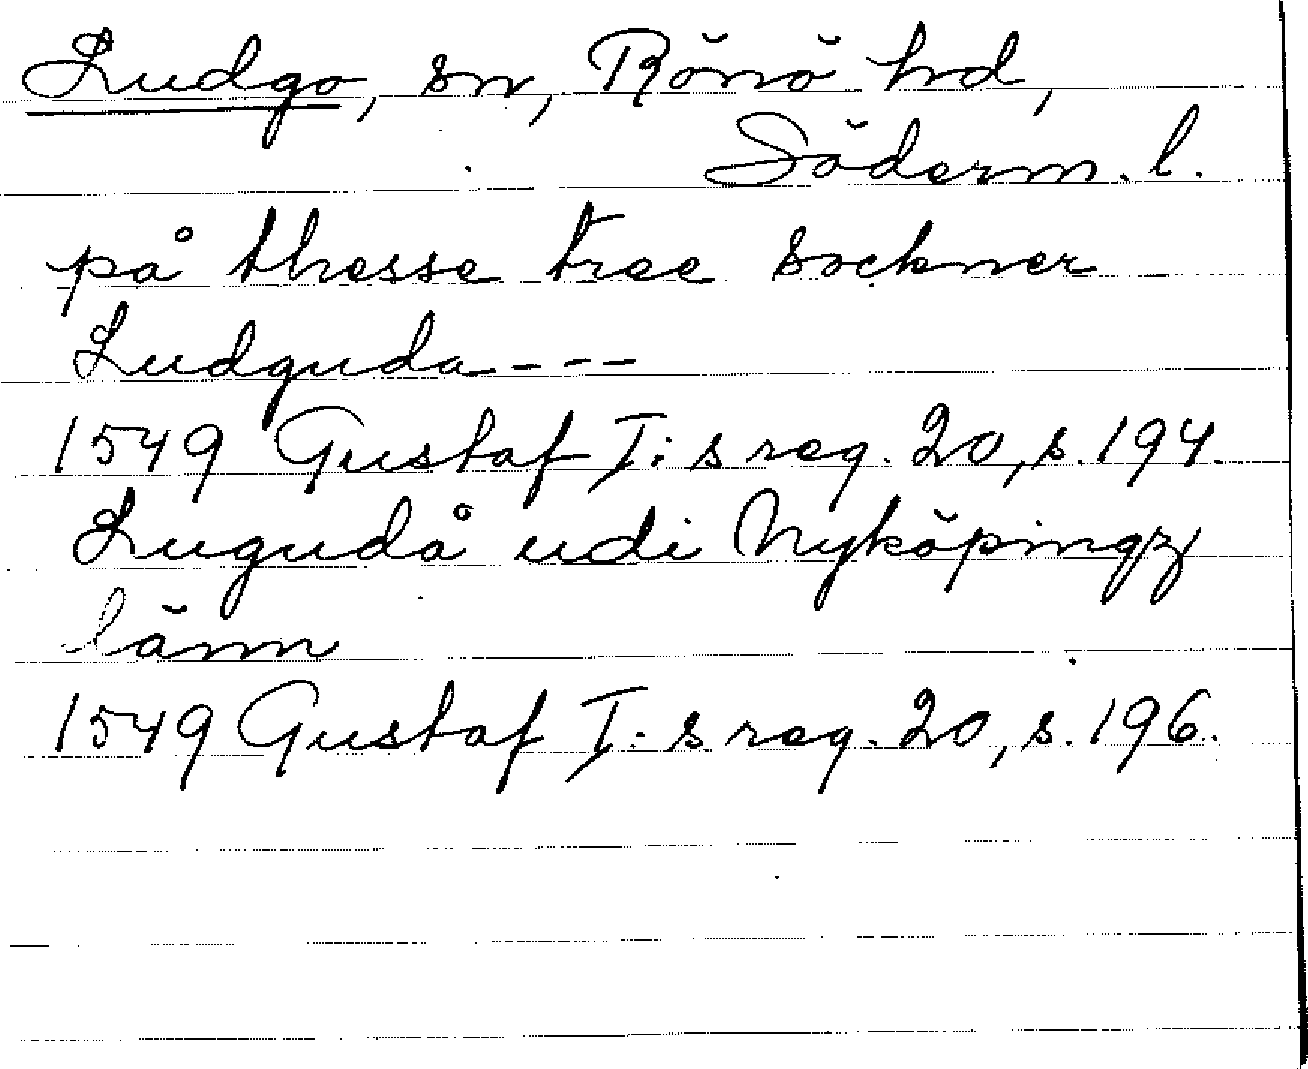 Ludgo, sn, Rönö hd,
Söderm. l.
på thesse tree sockner
Ludguda - - -
1549 Gustaf I:s reg. 20, s. 194.
Lugudå udi Nyköpingz
länn
1549 Gustaf I:s reg. 20, s. 196.